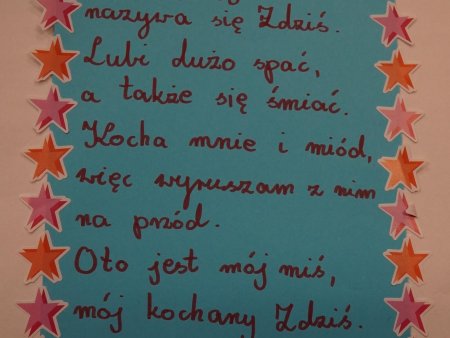 nazywa się Zdziś.
Lubi dużo spać,
a także się śmiać.
Kocha mnie i miód,
więc wyruszam z nim
na przód.
Oto jest mój miś,
mój kochany Zdziś.